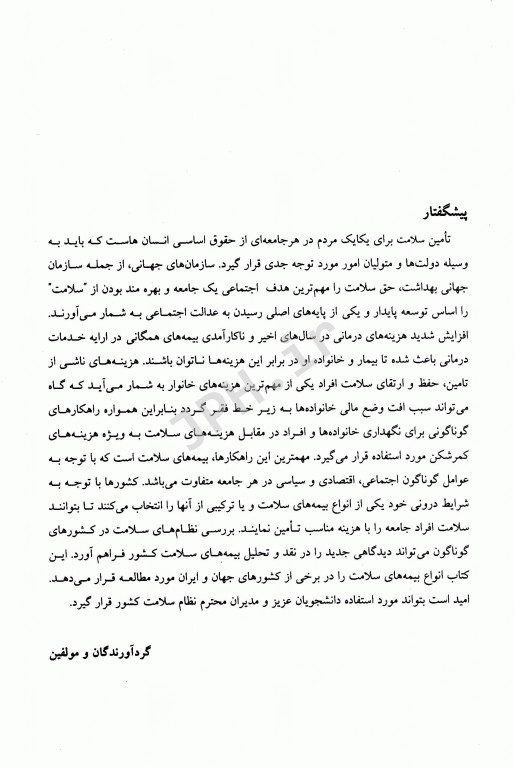 پیشگفتار
تأمین سلامت برای یکایک مردم در هرجامعه‌ای از حقوق اساسی انسان هاست که باید به
وسیله دولت‌ها و متولیان امور مورد توجه جدی قرار گیرد. سازمان‌های جهانی، از جمله سازمان
جهانی بهداشت، حق سلامت را مهم‌ترین هدف اجتماعی یک جامعه و بهره مند بودن از "سلامت"
را اساس توسعه پایدار و یکی از پایه‌های اصلی رسیدن به عدالت اجتماعی به شمار می‌آورند.
افزایش شدید هزینه‌های درمانی در سال‌های اخیر و ناکارآمدی بیمه‌های همگانی در ارایه خدمات
درمانی باعث شده تا بیمار و خانواده او در برابر این هزینه‌ها ناتوان باشند. هزینه‌های ناشی از
تامین، حفظ و ارتقای سلامت افراد یکی از مهم‌ترین هزینه‌های خانوار به شمار می‌آید که گاه
می‌تواند سبب افت وضع مالی خانواده‌ها به زیر خط فقر گردد بنابراین همواره راهکارهای
گوناگونی برای نگهداری خانواده‌ها و افراد در مقابل هزینه‌های سلامت به ویژه هزینه‌های
کمرشکن مورد استفاده قرار می‌گیرد. مهمترین این راهکارها، بیمه‌های سلامت است که با توجه به
عوامل گوناگون اجتماعی، اقتصادی و سیاسی در هر جامعه متفاوت می‌باشد. کشورها با توجه به
شرایط درونی خود یکی از انواع بیمه‌های سلامت و یا ترکیبی از آنها را انتخاب می‌کنند تا بتوانند
سلامت افراد جامعه را با هزینه مناسب تأمین نمایند. بررسی نظام‌های سلامت در کشورهای
گوناگون می‌تواند دیدگاهی جدید را در نقد و تحلیل بیمه‌های سلامت کشور فراهم آورد. این
کتاب انواع بیمه‌های سلامت را در برخی از کشورهای جهان و ایران مورد مطالعه قرار می‌دهد.
امید است بتواند مورد استفاده دانشجویان عزیز و مدیران محترم نظام سلامت کشور قرار گیرد.
گردآورندگان و مولفین
JPH.ir